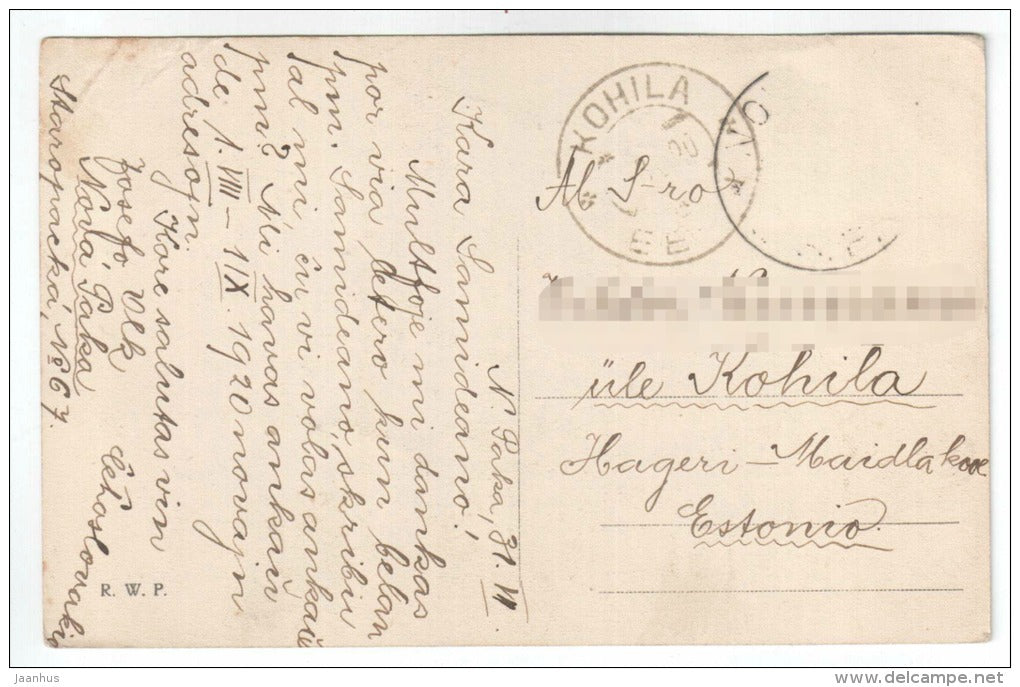 N. Paka, 31. VII
Kara Samideano!
Multfoje mi dankas
por via letero kun belan
pm. Samideano, skribu
al mi, ĉu vi volas ankaŭ
pm? Mi havas ankaŭ
de 1. VIII – 1 IX. 1920 novajn
adresojn.
Kore salutas vin
Josefo Vlk
Nová Paka
Staropacká, № 67.
Ĉeĥoslovakio
R. W. P.
KOHILA
EE
Al S-ro
üle Kohila
Hageri – Maidla
Estonio
Jaanhus
www.delcampe.net